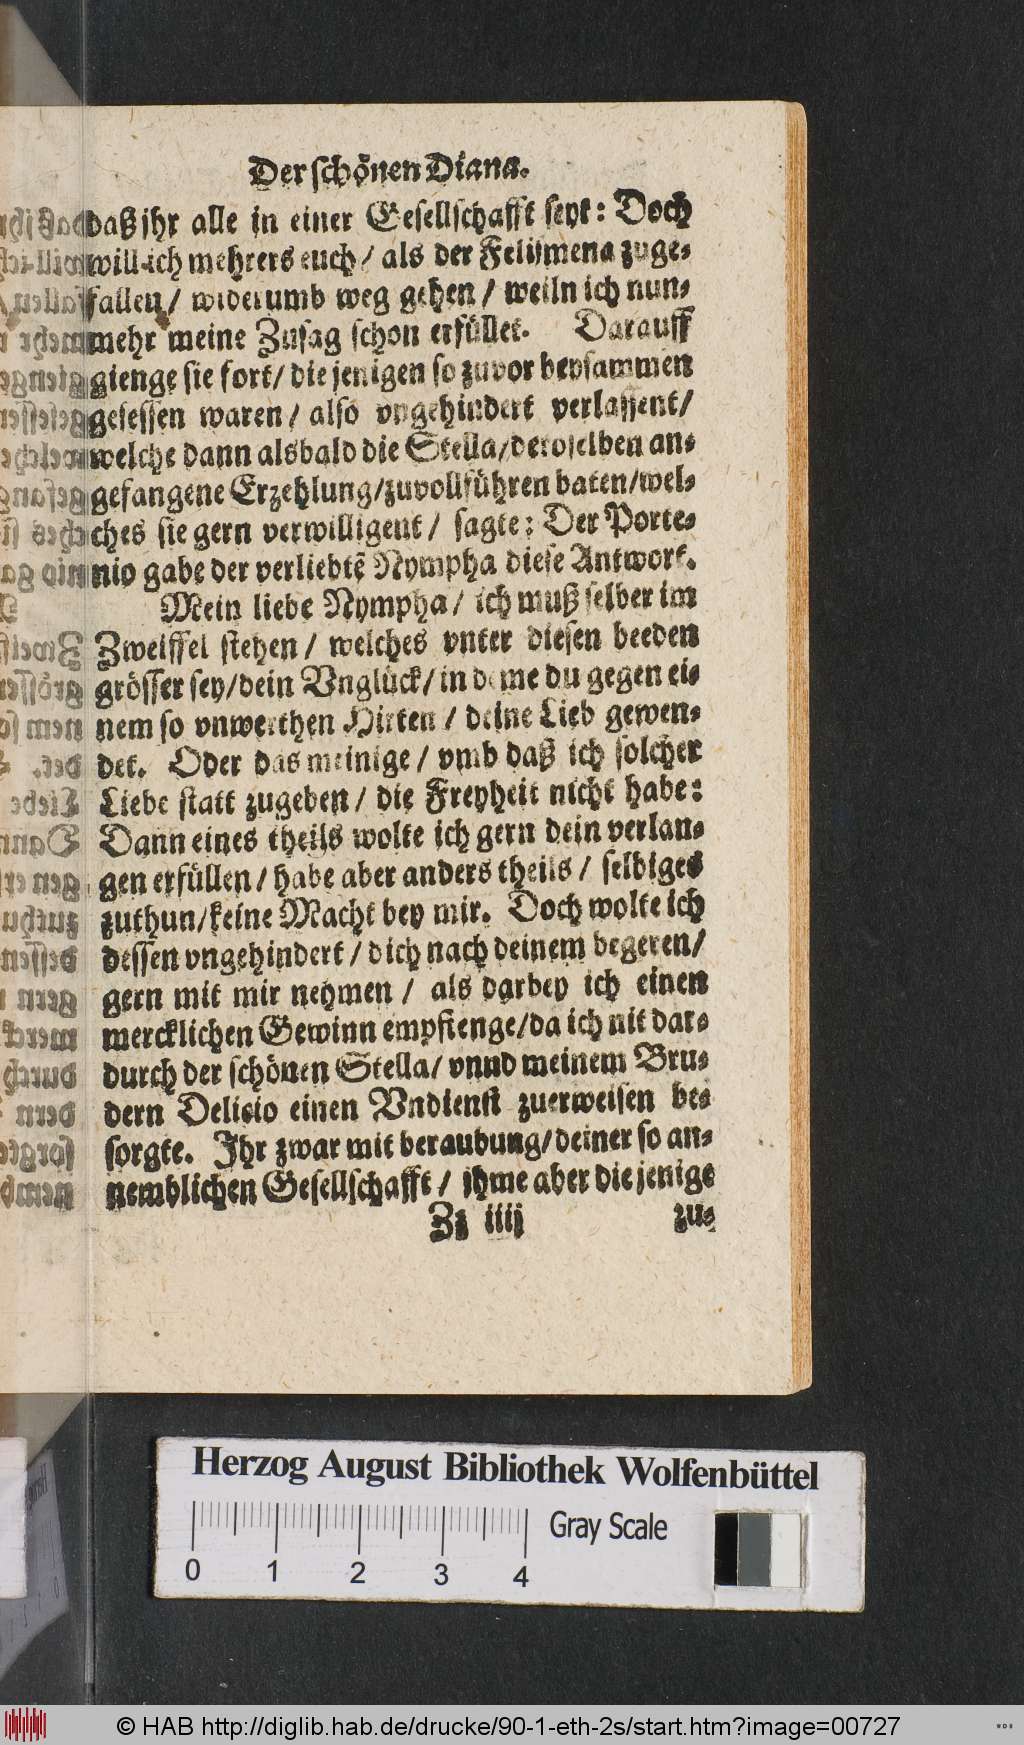 Der schönen Diana.
daß jhr alle in einer Gesellschafft seyt: Doch
will ich mehrers euch / als der Felismena zuge-
fallen / widerumb weg gehen / weiln ich nun-
mehr meine Zusag schon erfüllet. Darauff
gienge sie fort / die jenigen so zuvor beysammen
gesessen waren / also vngehindert verlassent /
welche dann alsbald die Stella / deroselben an-
gefangene Erzehlung / zuvollführen baten / wel-
ches sie gern verwilligent / sagte: Der Porte-
nio gabe der verliebtē Nympha diese Antwort.
Mein liebe Nympha / ich muß selber im
Zweiffel stehen / welches vnter diesen beeden
grösser sey / dein Vnglück / in deme du gegen ei-
nem so vnwerthen Hirten / deine Lieb gewen-
det. Oder das meinige / vmb daß ich solcher
Liebe statt zugeben / die Freyheit nicht habe:
Dann eines theils wolte ich gern dein verlan-
gen erfüllen / habe aber anders theils / selbiges
zuthun / keine Macht bey mir. Doch wolte ich
dessen vngehindert / dich nach deinem begeren /
gern mit mir nehmen / als darbey ich einen
mercklichen Gewinn empfienge / da ich nit dar-
durch der schönen Stella / vnnd meinem Bru-
dern Delicio einen Vndienst zuerweisen be-
sorgte. Jhr zwar mit beraubung / deiner so an-
nemblichen Gesellschafft / jhme aber die jenige
Zz iiij zu-
Herzog August Bibliothek Wolfenbüttel
0 1 2 3 4 Gray Scale
© HAB http://diglib.hab.de/drucke/90-1-eth-2s/start.htm?image=00727